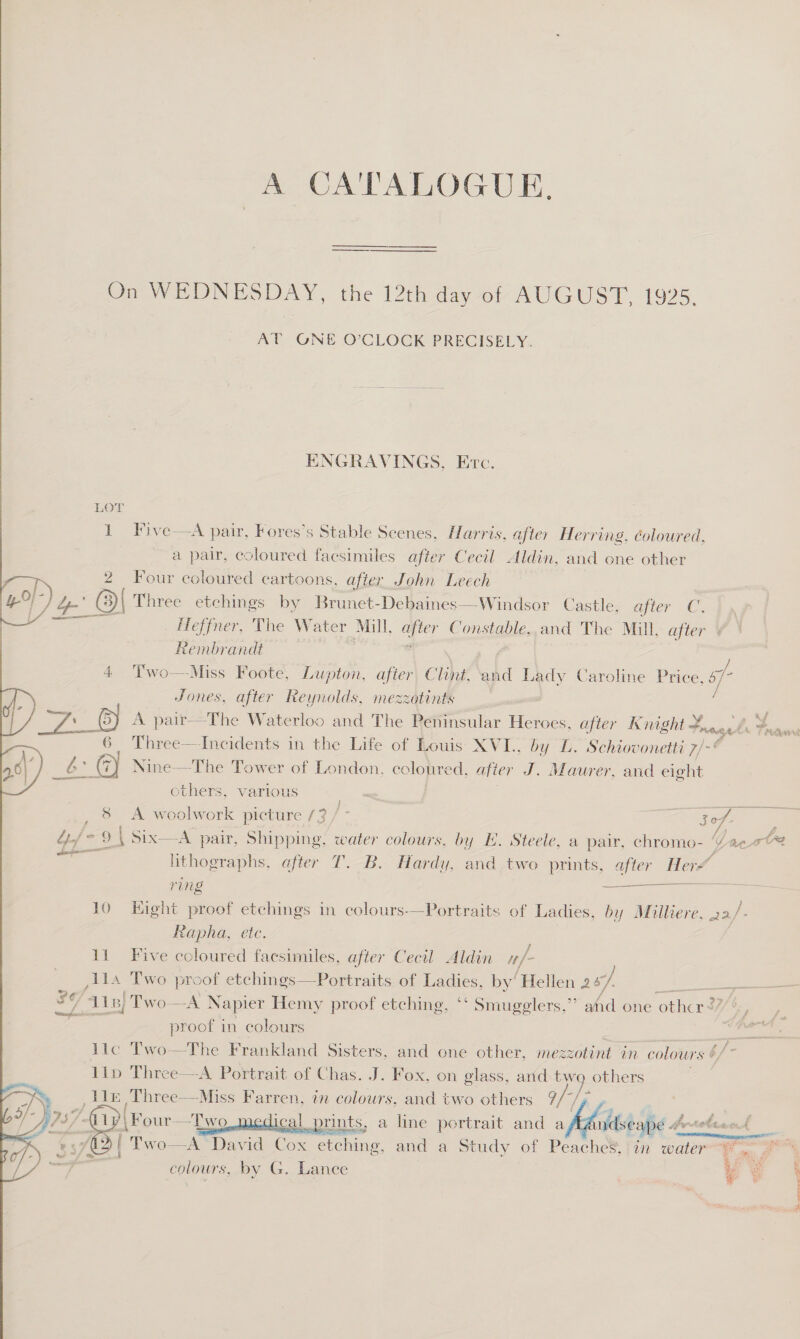 A CATALOGUE.
On WEDNESDAY, the 12th day of AUGUST, 1925.
AT ONE O'CLOCK PRECISELY.
ENGRAVINGS, ETC.
LOT
1 Five—A pair, Fores's Stable Scenes, Harris, after Herring, coloured,
a pair, coloured facsimiles after Cecil Aldin, and one other
2 Four coloured cartoons, after John Leech
40/- 4- 3 Three etchings by Brunet-Debaines—Windsor Castle, after C.
Heffner, The Water Mill, after Constable, and The Mill, after
Rembrandt
4 Two—Miss Foote, Lupton, after Clint, and Lady Caroline Price, 5/-
Jones, after Reynolds, mezzotints
7- 5 A pair—The Waterloo and The Peninsular Heroes, after Knight
6 Three—Incidents in the Life of Louis XVI., by L. Schiovonetti 7/-
6- 7 Nine—The Tower of London, coloured, after J. Maurer, and eight
others, various
8 A woolwork picture 13/- 30/-
4/- 9 Six—A pair, Shipping, water colours, by E. Steele, a pair, chromo-
lithographs, after T. B. Hardy, and two prints, after Her-
ring
10 Eight proof etchings in colours—Portraits of Ladies, by Milliere, 22/-
Rapha, etc.
11 Five coloured facsimiles, after Cecil Aldin 11/-
11A Two proof etchings—Portraits of Ladies, by Hellen 25/-
11B Two—A Napier Hemy proof etching, "Smugglers," and one other
proof in colours
11C Two—The Frankland Sisters, and one other, mezzotint in colours 6/-
11D Three—A Portrait of Chas. J. Fox, on glass, and two others
11E Three—Miss Farren, in colours, and two others 9/-
11F Four—Two medical prints, a line portrait and a landscape
12 Two—A David Cox etching, and a Study of Peaches, in water
colours, by G. Lance